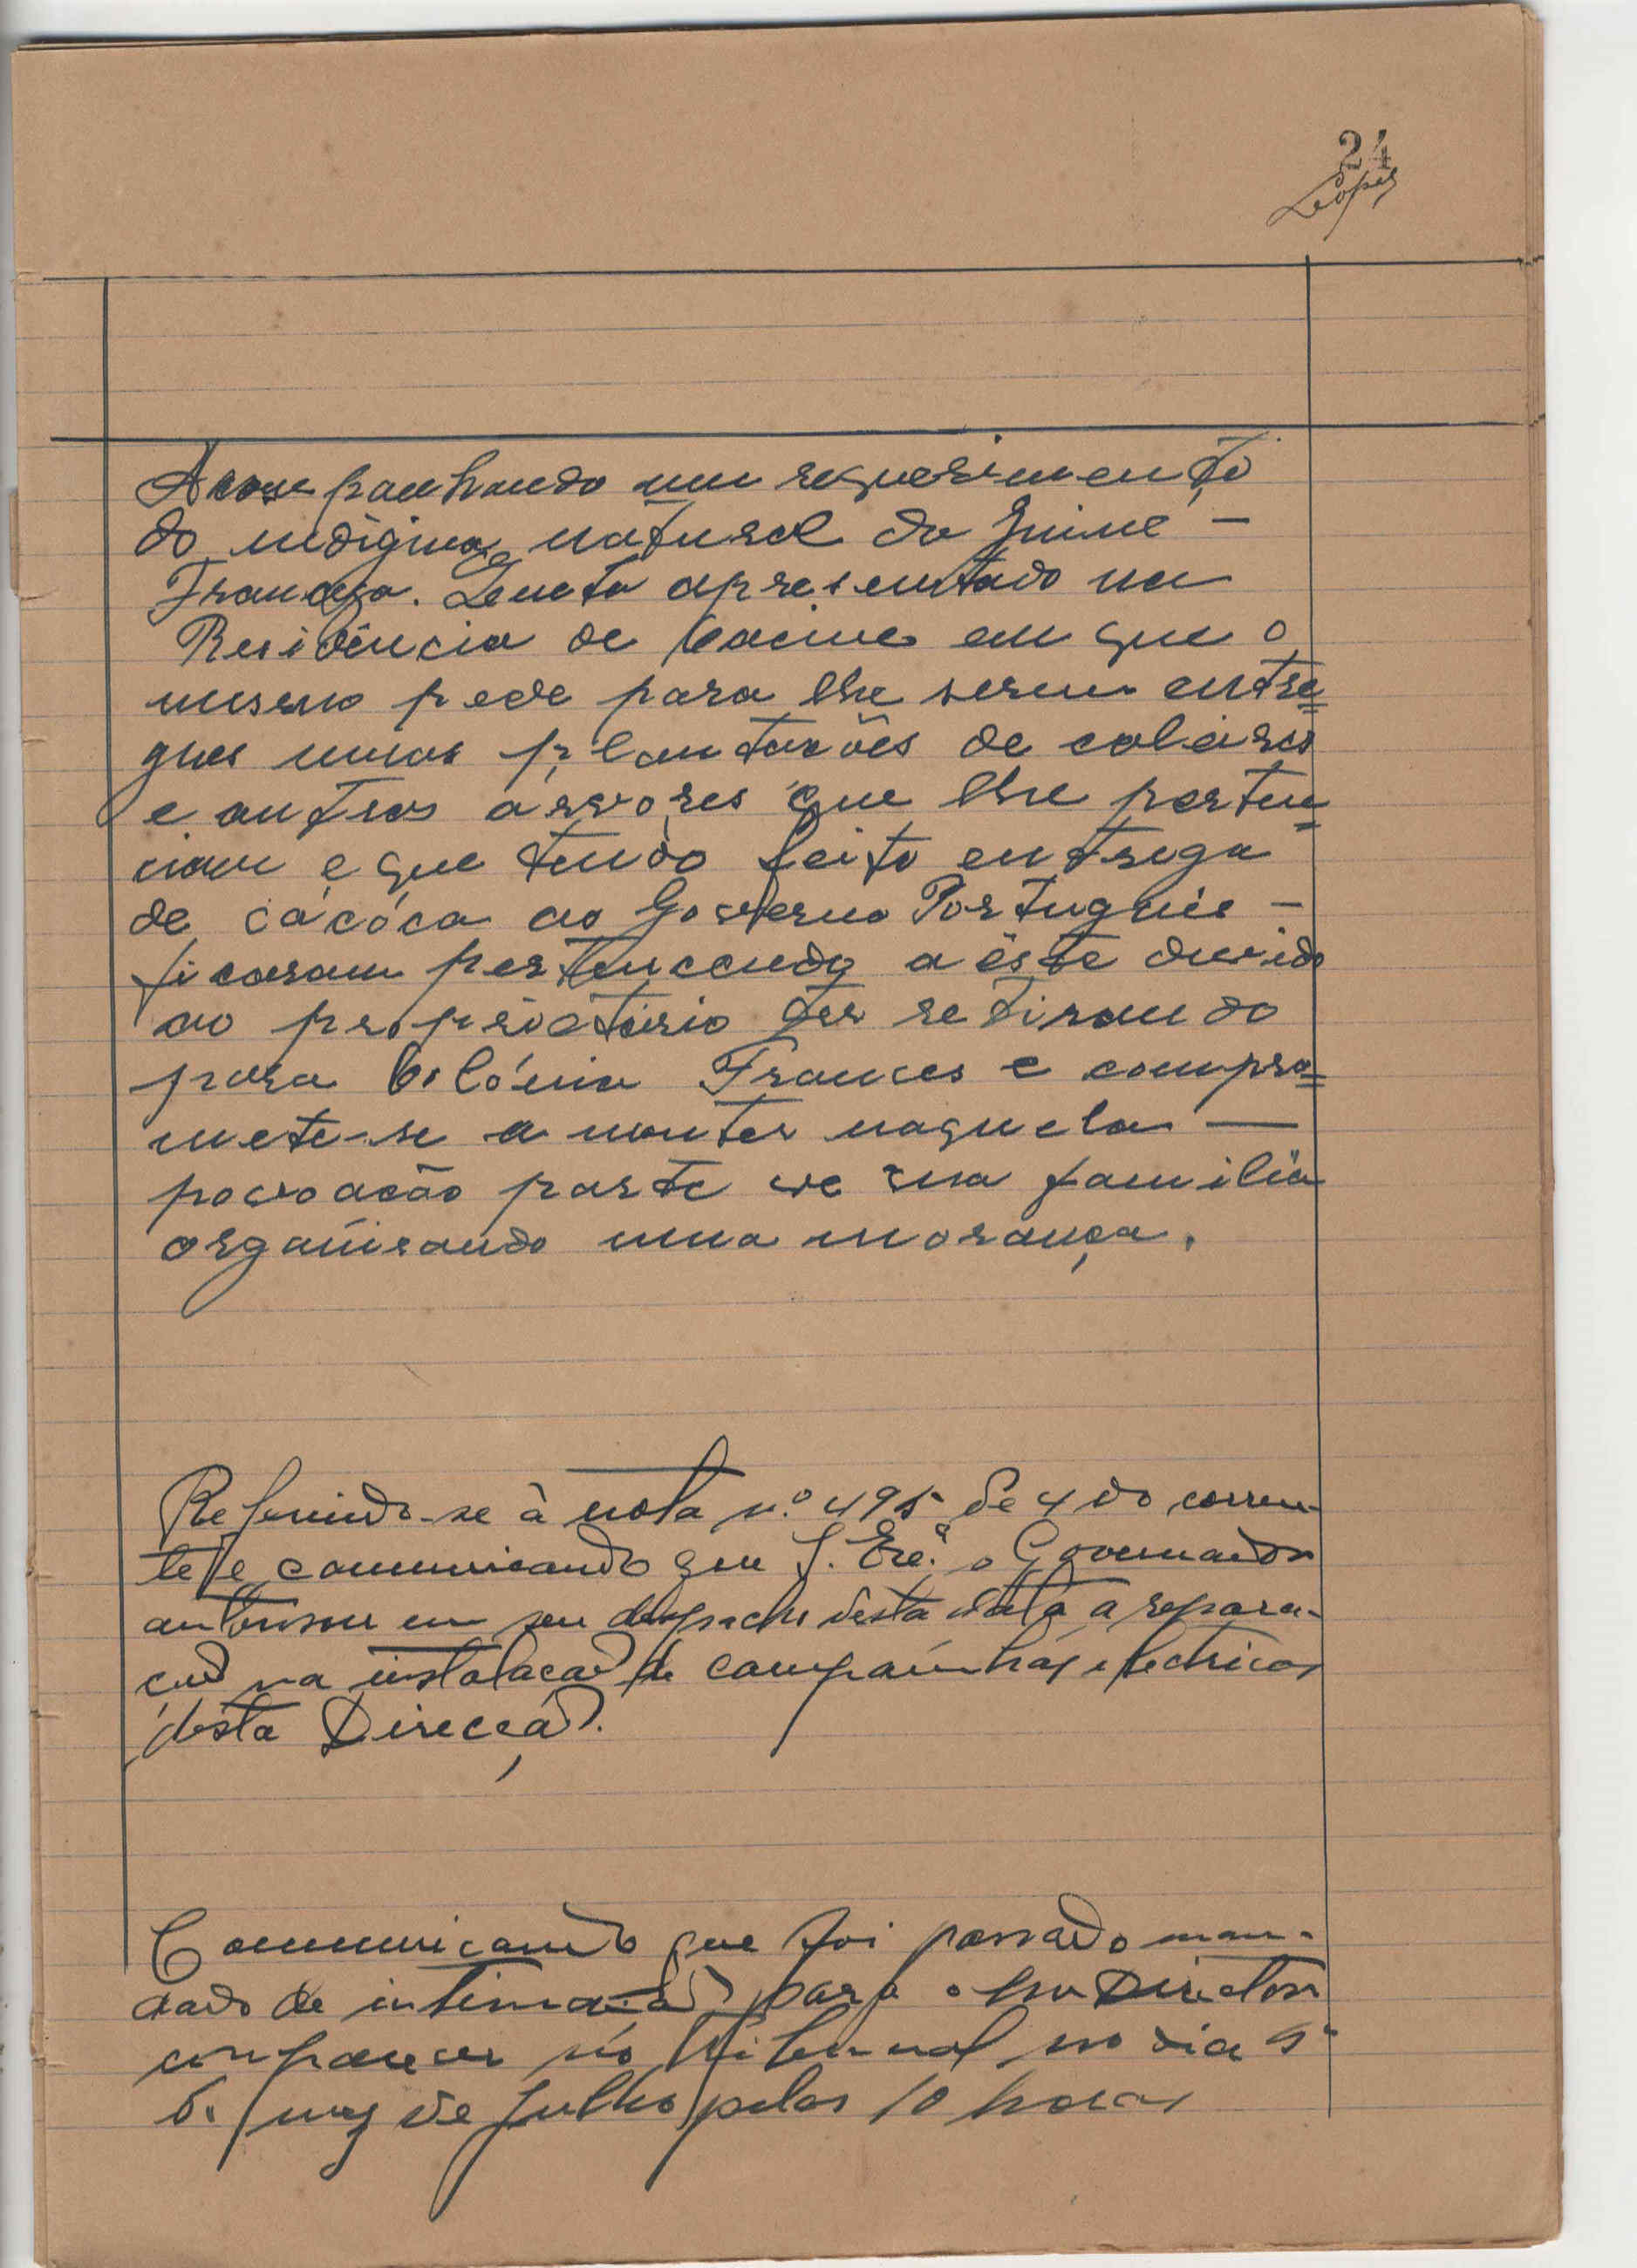 24
Lopes
Acompanhando um requerimento
do indigina natural da Guiné -
Francesa. apresentado na
Residência de Cacine em que o
mesmo pede para lhe serem entre=
gues umas plantações de coleiras
e outras arvores que lhe perten=
ciam e que tendo feito entrega
de Cacóca ao Govêrno Português -
ficaram pertencendo a êste devido
ao propriètário ter retirando
para Colónia Frances e compro=
mete-se a manter naquela —
povoação parte de sua familia
organisando uma morança.
Referindo-se à nota n.º 495 de 4 do corren-
te e communicando que S. Exc.ª o Governador
autorisou em seu despacho desta data a repara-
ção na instalação de campaínhas electricas
desta Direcção.
Communicando que foi passado man-
dado de intimação para o Director
comparecer no Tribunal no dia
do mez de Julho pelas 10 horas